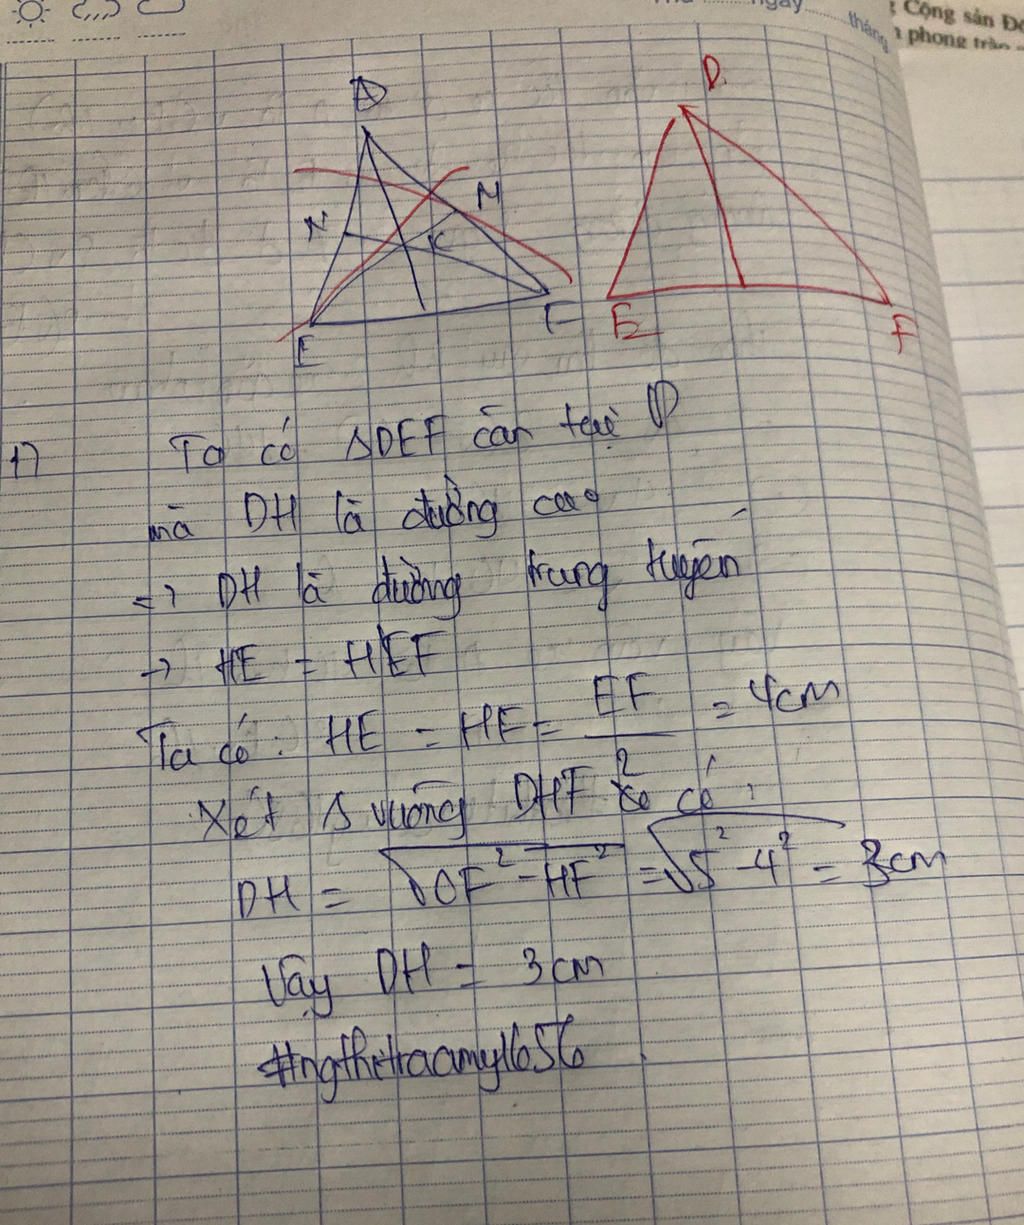 ngày........tháng
Cộng sản Đ
phong trào
D
N
M
K
E
F
D
E
F
1)
Ta có ΔDEF cân tại D
mà DH là đường cao
=> DH là đường trung tuyến
-> HE = HEF
Ta có: HE = HF = EF/2 = 4cm
Xét Δ vuông DHF có:
DH = √DF² - HF² = √5² - 4² = 3cm
Vậy DH = 3cm
#ngthehtraamy1656